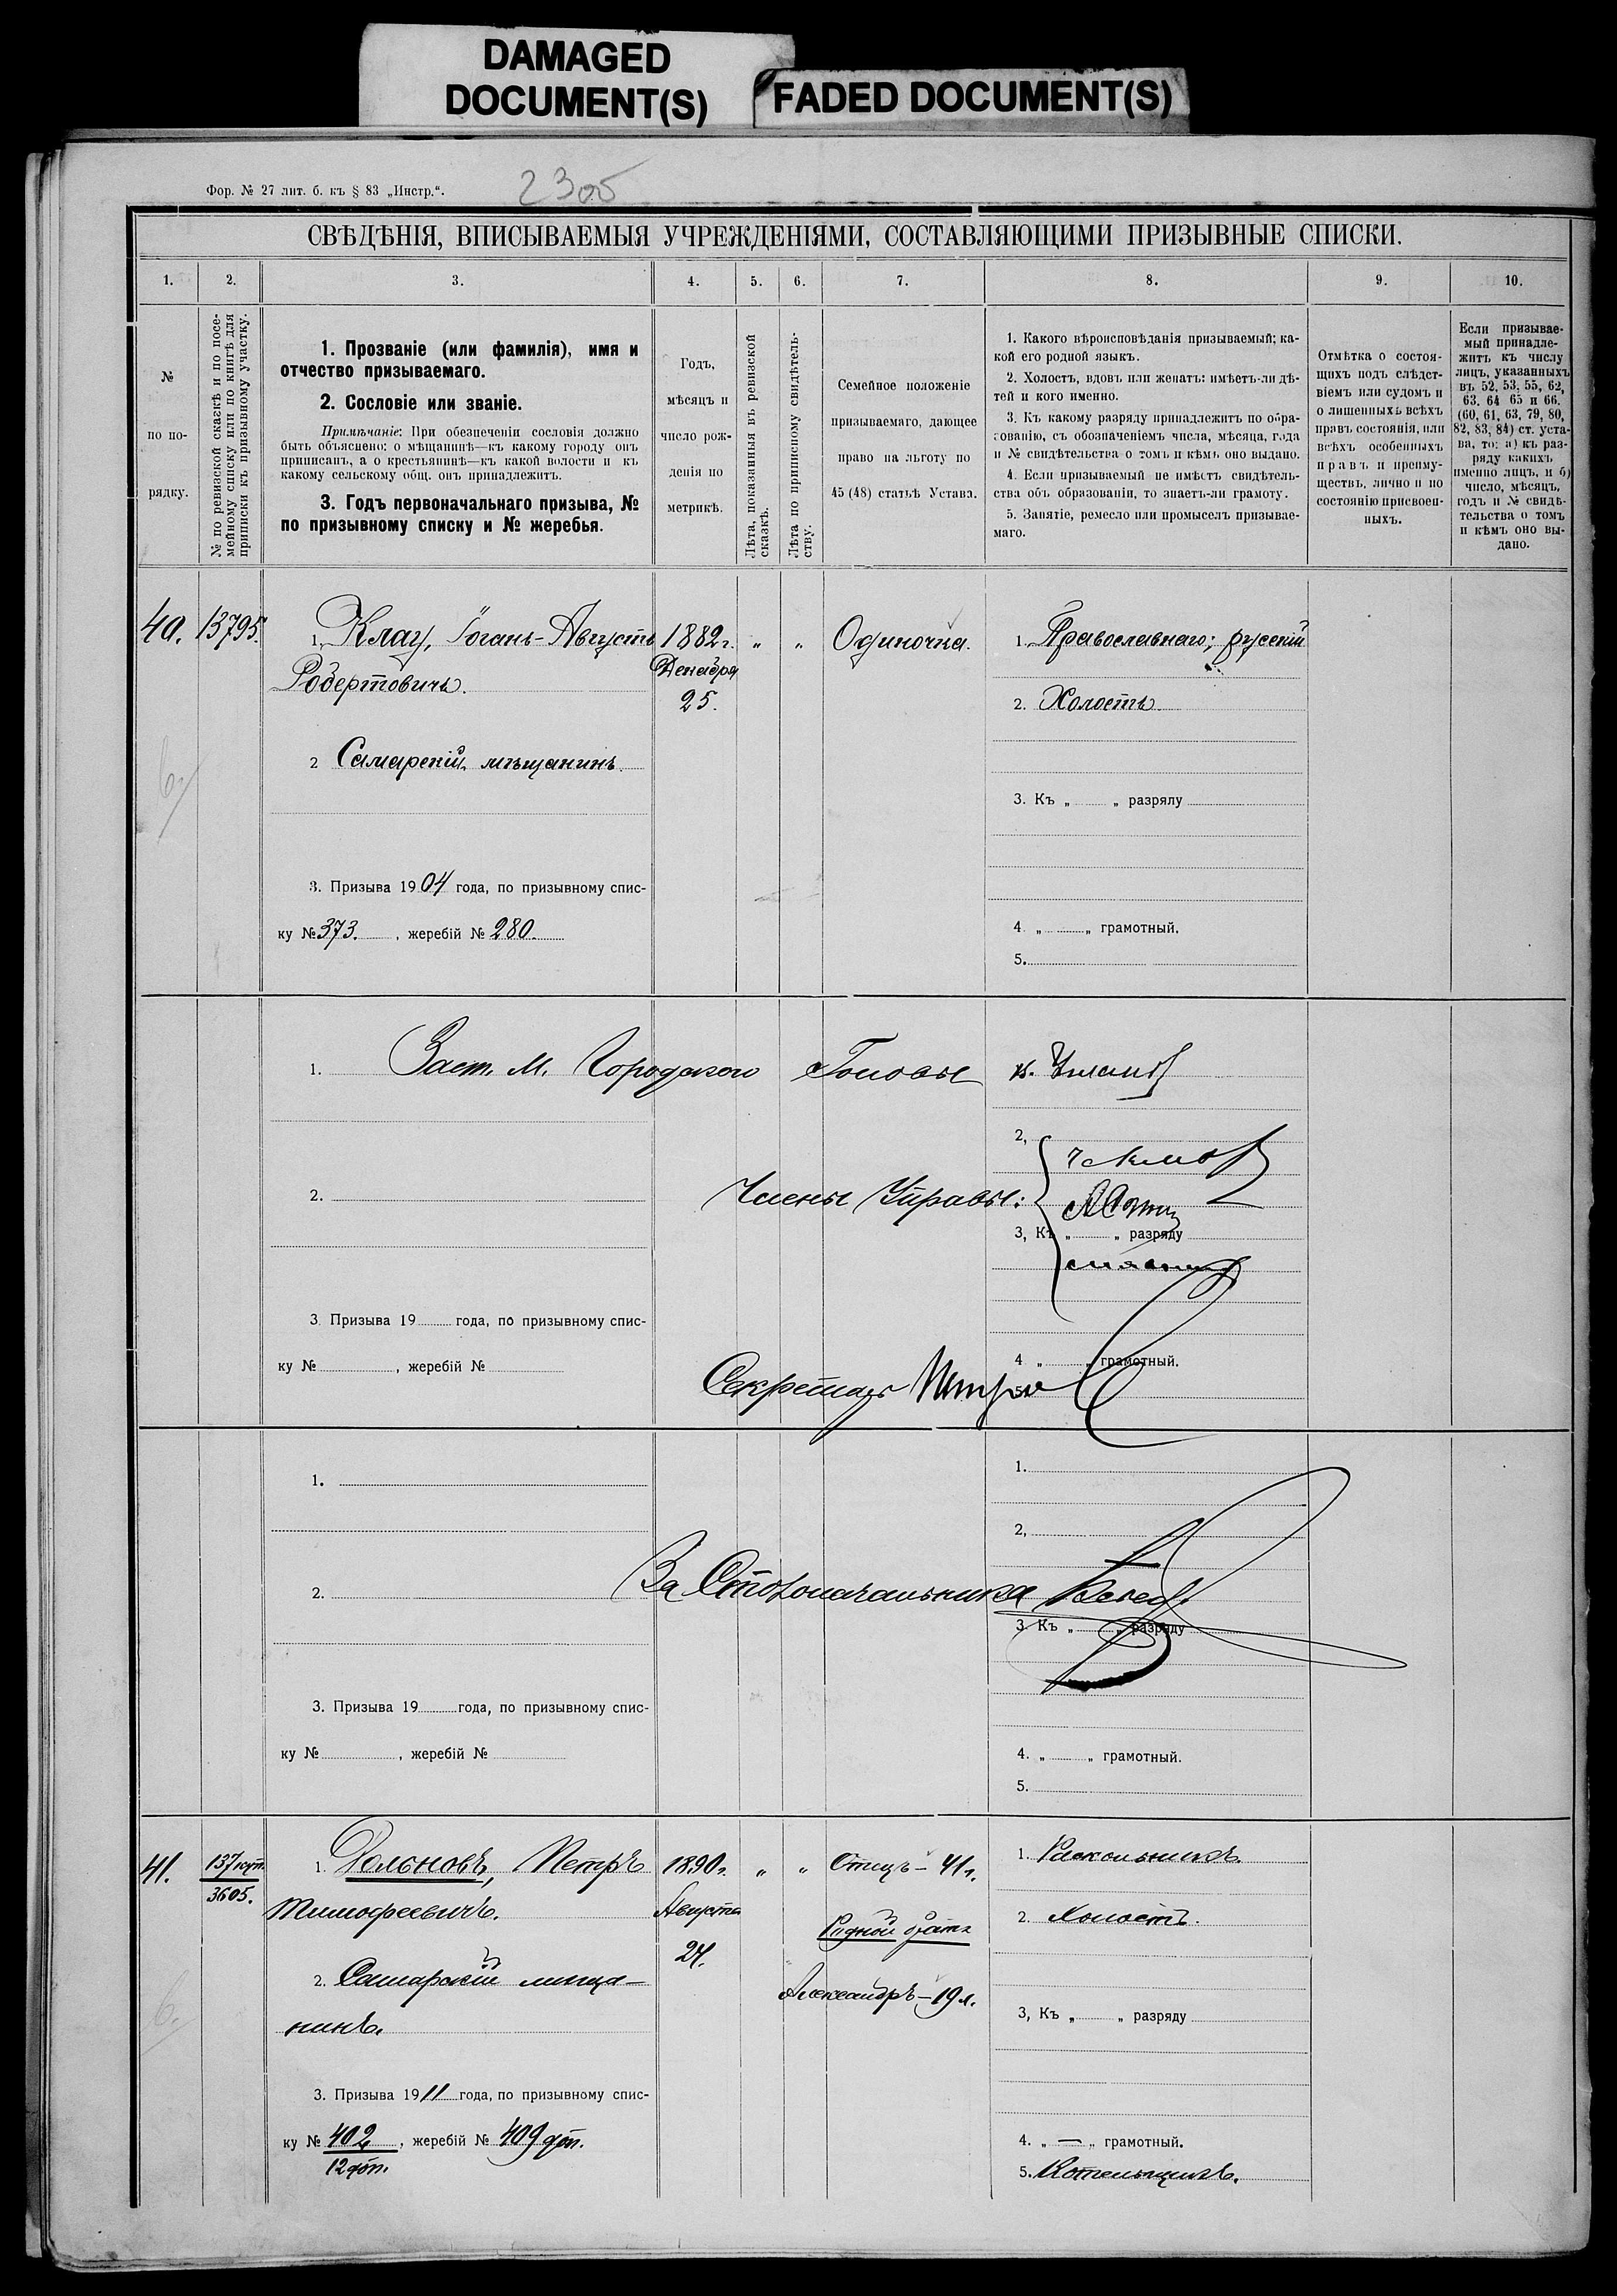 DAMAGED
DOCUMENT(S)
FADED DOCUMENT(S)
Фор. № 27 лит. б. къ § 83 „Инстр.“.
2305
СВѢДѢНІЯ, ВПИСЫВАЕМЫЯ УЧРЕЖДЕНІЯМИ, СОСТАВЛЯЮЩИМИ ПРИЗЫВНЫЕ СПИСКИ.
1. 2. 3. 4. 5. 6. 7. 8. 9. 10.
№
по по-
рядку.
№ по ревизской сказкѣ и по посе-
мейному списку или по книгѣ для
приписки къ призывному участку.
1. Прозваніе (или фамилія), имя и
отчество призываемаго.
2. Сословіе или званіе.
Примѣчаніе: При обезпеченіи сословія должно
быть объяснено: о мѣщанинѣ—къ какому городу онъ
приписанъ, а о крестьянинѣ—къ какой волости и къ
какому сельскому общ. онъ принадлежитъ.
3. Годъ первоначальнаго призыва, №
по призывному списку и № жеребья.
Годъ,
мѣсяцъ и
число рож-
денія по
метрикѣ.
Лѣта, показанныя въ ревизской
сказкѣ.
Лѣта по приписному свидѣтель-
ству.
Семейное положеніе
призываемаго, дающее
право на льготу по
45 (48) статьѣ Устава.
1. Какого вѣроисповѣданія призываемый; ка-
кой его родной языкъ.
2. Холостъ, вдовъ или женатъ: имѣетъ-ли дѣ-
тей и кого именно.
3. Къ какому разряду принадлежитъ по обра-
зованію, съ обозначеніемъ числа, мѣсяца, года
и № свидѣтельства о томъ и кѣмъ оно выдано.
4. Если призываемый не имѣетъ свидѣтель-
ства объ образованіи, то знаетъ-ли грамоту.
5. Занятіе, ремесло или промыселъ призывае-
маго.
Отмѣтка о состоя-
щихъ подъ слѣдст-
віемъ или судомъ и
о лишенныхъ всѣхъ
правъ состоянія, или
всѣхъ особенныхъ
правъ и преиму-
ществъ, лично и по
состоянію присвоен-
ныхъ.
Если призывае-
мый принадле-
житъ къ числу
лицъ, указанныхъ
въ 52, 53, 55, 62,
63. 64 65 и 66.
(60, 61, 63, 79, 80,
82, 83, 84) ст. уста-
ва, то: а) къ раз-
ряду какихъ
именно лицъ, и б)
число, мѣсяцъ,
годъ и № свидѣ-
тельства о томъ
и кѣмъ оно вы-
дано.
40. 13795. 1. Клау, Іоганъ-Августъ 1882 г. „ „ Одиночка. 1. Православнаго; русскій
Робертовичъ. Декабря
25. 2. Холостъ.
2 Самарскій мѣщанинъ.
3. Къ „ „ разрялу
3. Призыва 1904 года, по призывному спис-
ку № 373. , жеребій № 280.
4. „ „ грамотный.
5.
1. Заст. М. Городского Головы
2,
Члены Управы:
2.
3, Къ „ „ разряду
3. Призыва 19 года, по призывному спис-
ку № , жеребій №
4 „ „ грамотный.
Секретарь
1. 1.
2,
За Столоначальника
2.
3. Къ „ „ разряду
3. Призыва 19 года, по призывному спис-
ку № , жеребій №
4. „ „ грамотный.
5.
41. 137 куп. 1. Дольновъ, Петръ 1890 г. „ „ Отецъ – 41 г. 1. Раскольникъ.
3605.
Тимофеевичъ. Августа Родной братъ 2. Холостъ.
24.
2. Самарскій мѣща- Александръ – 19 л.
нинъ. 3, Къ „ „ разряду
3. Призыва 1911 года, по призывному спис-
ку № 402 , жеребій № 409 доп. 4. „ — „ грамотный.
12 доп. 5. Котельщикъ.